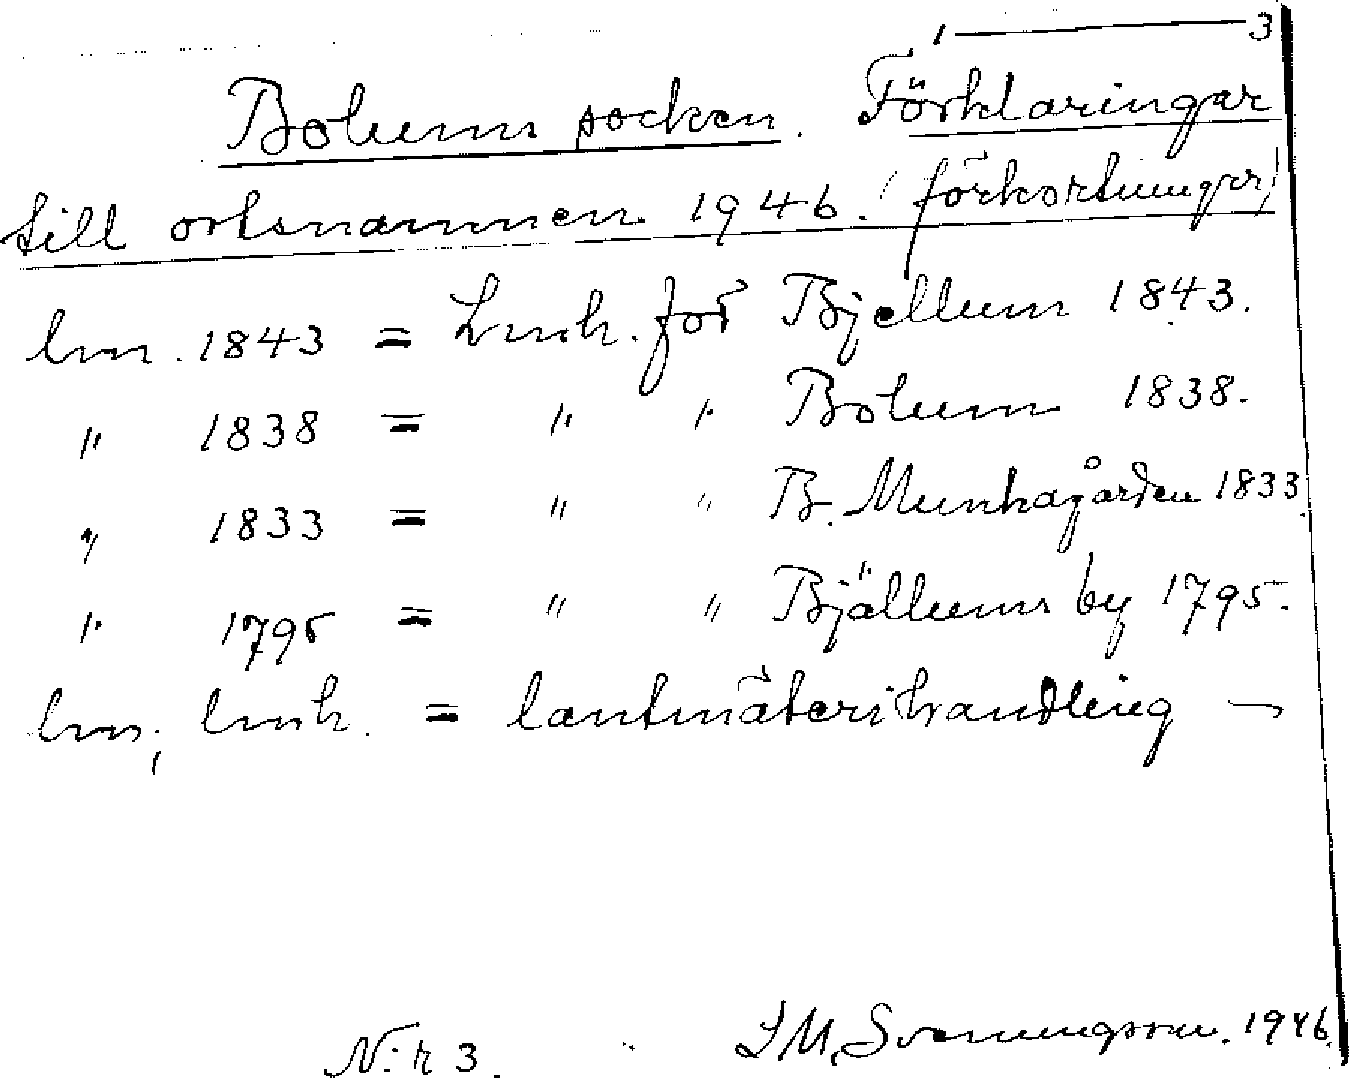 1 — 3
Bolums socken. Förklaringar
till ortsnamnen 1946. (förkortningar)
lm. 1843 = Lmh. för Bjellum 1843.
" 1838 = " " Bolum 1838.
" 1833 = " " B. Munkagården 1833.
" 1795 = " " Bjällums by 1795.
lm, lmh. = lantmäterihandling —
N:r 3. I M. Svenungsson. 1946.